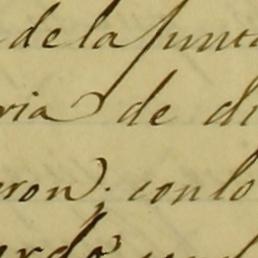 de la Junta
ria de di
eron; con lo
erdo